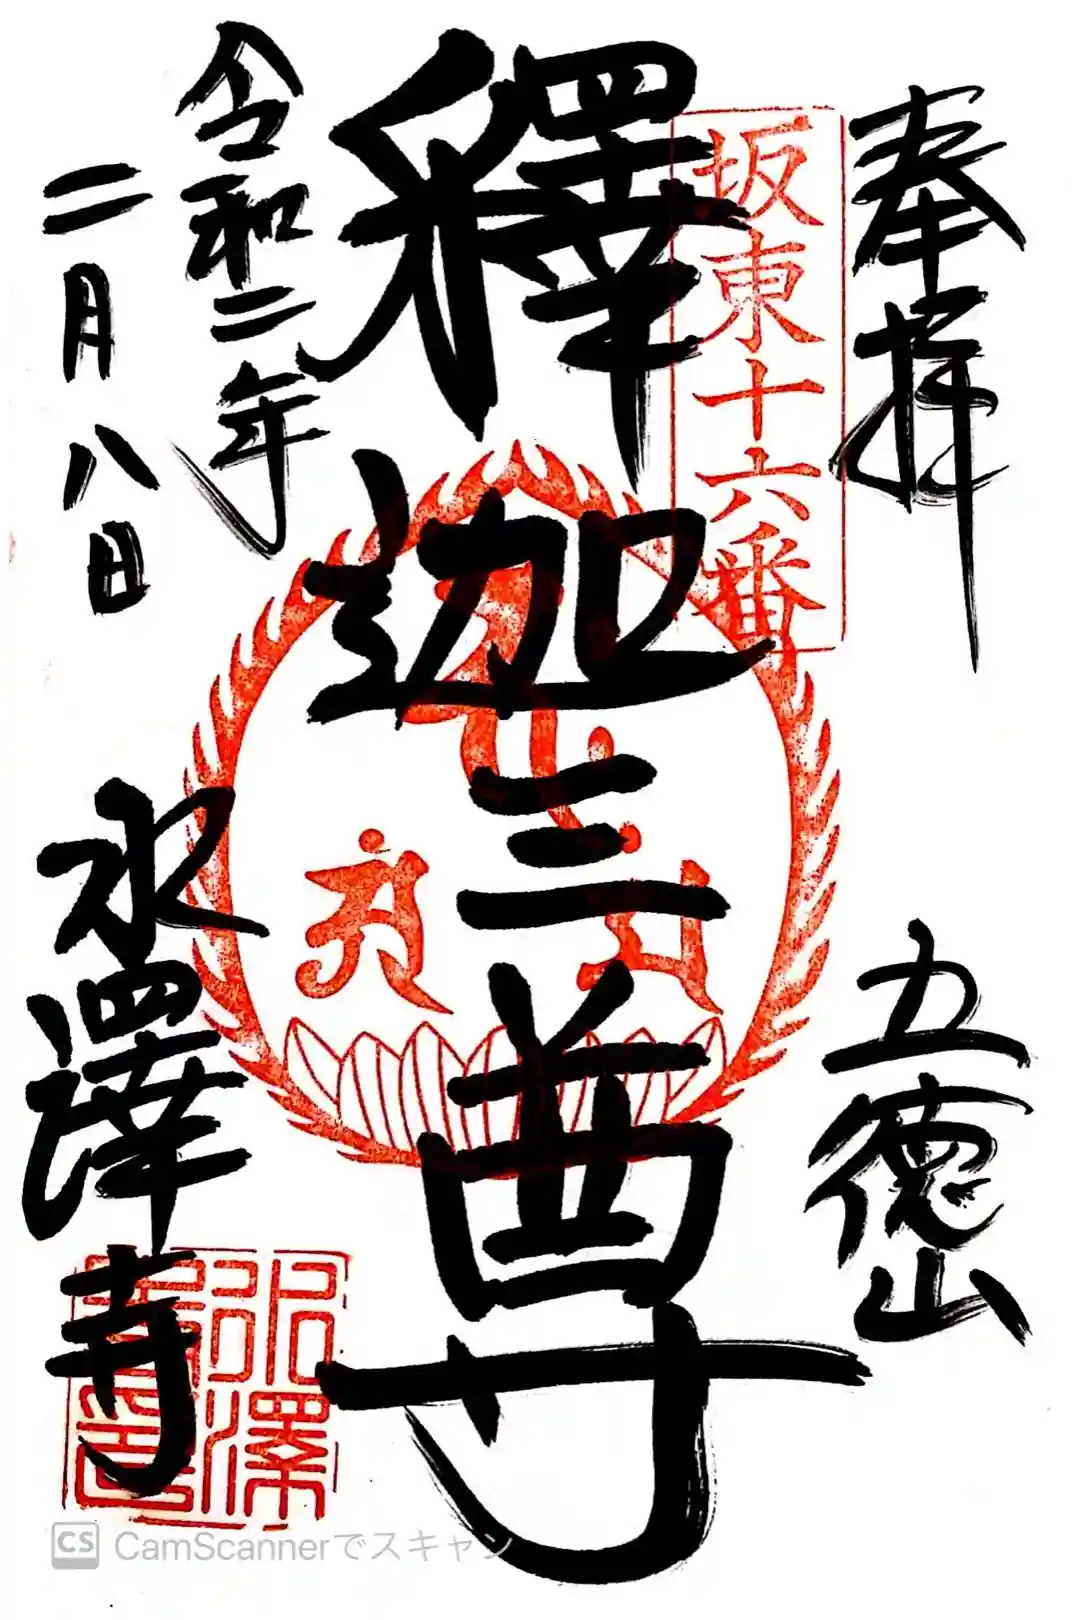 奉拝
五徳山
坂東十六番
釋迦三尊
令和二年
二月八日
水澤寺
水澤
寺印
CS CamScannerでスキャン